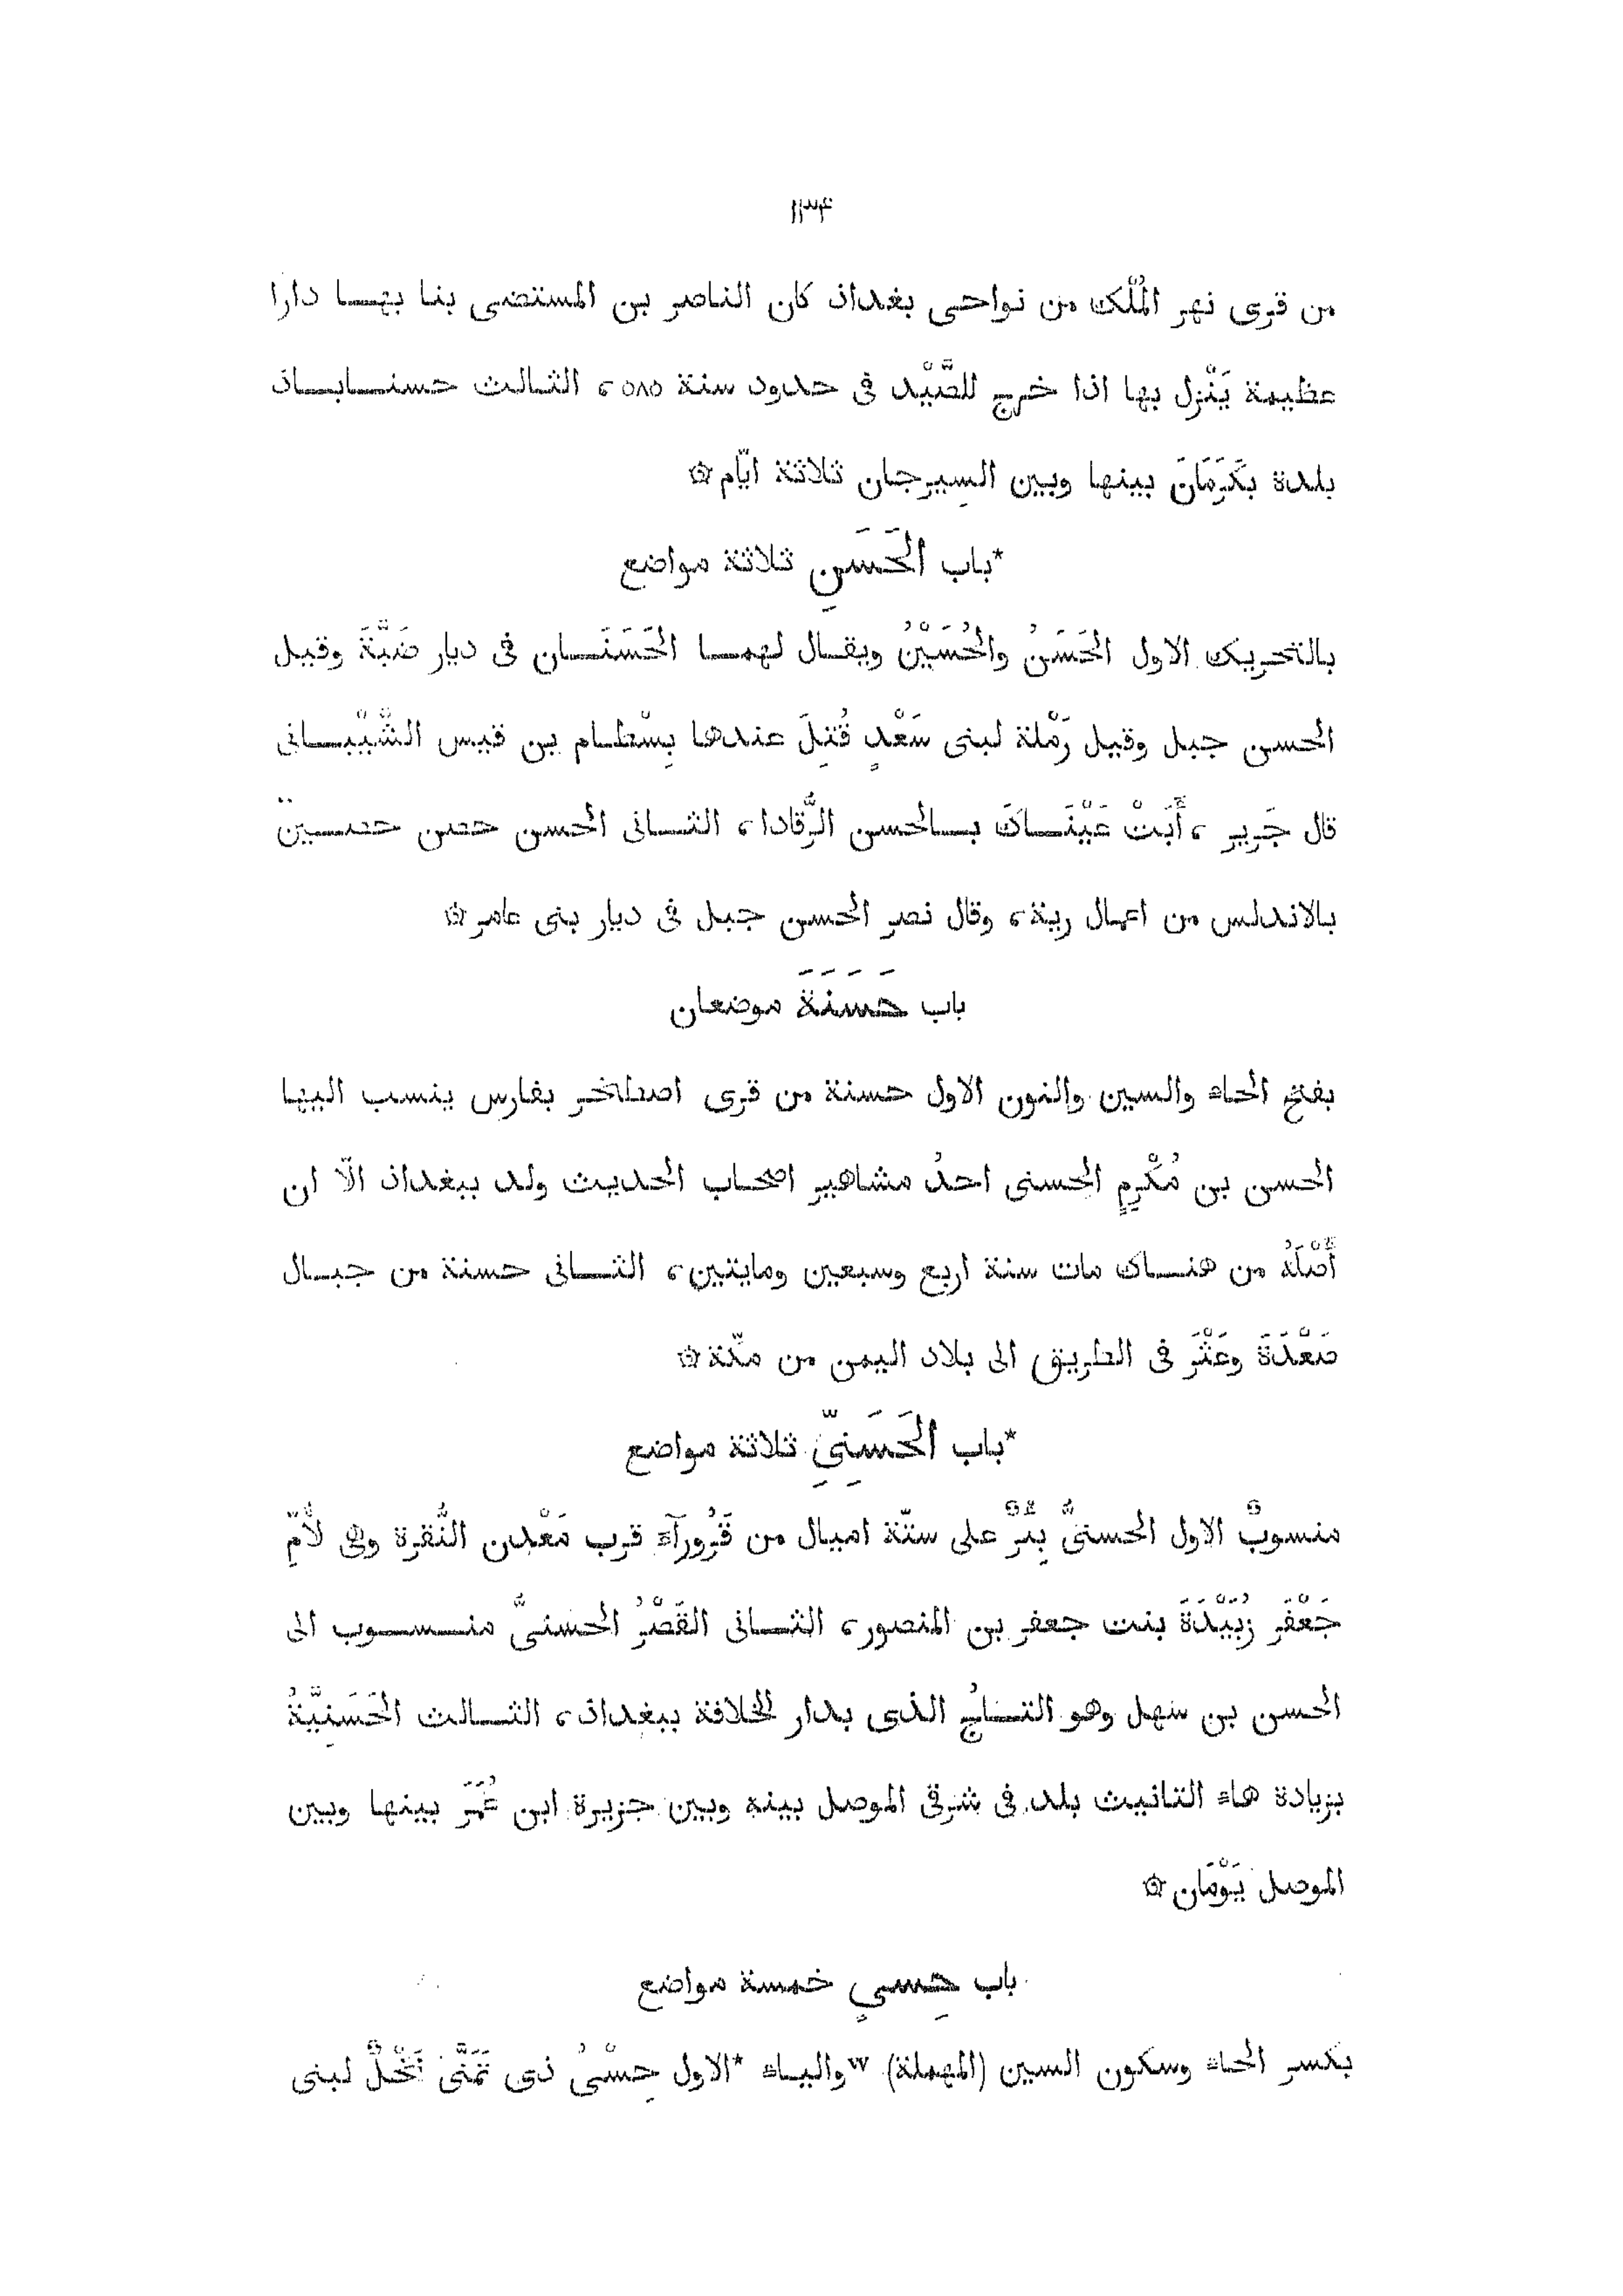 ١٣۴
من قرى نهر المُلْك من نواحى بغداذ كان الناصر بن المستضى بنا بها دارا
عظيمة يَنْزل بها اذا خرج للصَّيْد فى حدود سنة ٥٨٥، الثالث حسناباذ
بلدة بكَرْمَانَ بينها وبين السِيرجان ثلاثة ايّام ۞
*باب الحَسَنِ ثلاثة مواضع
بالتحريك الاول الحَسَنُ والحُسَيْنُ ويقال لهما الحَسَنَان فى ديار ضَبَّةَ وقيل
الحسن جبل وقيل رَمْلة لبنى سَعْدٍ قُتِلَ عندها بِسْطام بن قيس الشَّيْبانى
قال جَرير، أَبَتْ عَيْنَاكَ بالحسن الرُّقادا، الثانى الحسن حصن حصين
بالاندلس من اعمال رية، وقال نصر الحسن جبل فى ديار بنى عامر ۞
باب حَسَنَةَ موضعان
بفتح الحاء والسين والنون الاول حسنة من قرى اصطخر بفارس ينسب اليها
الحسن بن مُكْرِمٍ الحسنى احدُ مشاهير اصحاب الحديث ولد ببغداذ الّا ان
أَصْلَهُ من هناك مات سنة اربع وسبعين ومايتين، الثانى حسنة من جبال
صَعْدَةَ وعَثْرَ فى الطريق الى بلاد اليمن من مكّة ۞
*باب الحَسَنِىِّ ثلاثة مواضع
منسوبٌ الاول الحسنىُّ بِئْرٌ على ستّة اميال من قَرُورَآءَ قرب مَعْدن النُّقرة وهى لأُمِّ
جَعْفَر زُبَيْدَةَ بنت جعفر بن المنصور، الثانى القَصْرُ الحسنىُّ منسوب الى
الحسن بن سهل وهو التاجُ الذى بدار الخلافة ببغداذ، الثالث الحَسَنِيَّةُ
بزيادة هاء التانيث بلد فى شرقى الموصل بينه وبين جزيرة ابن عُمَرَ بينها وبين
الموصل يَوْمَان ۞
باب حِسيٍ خمسة مواضع
بكسر الحاء وسكون السين (المهملة) w والياء *الاول حِسْىُ ذى تَمَنَّى نَخْلٌ لبنى